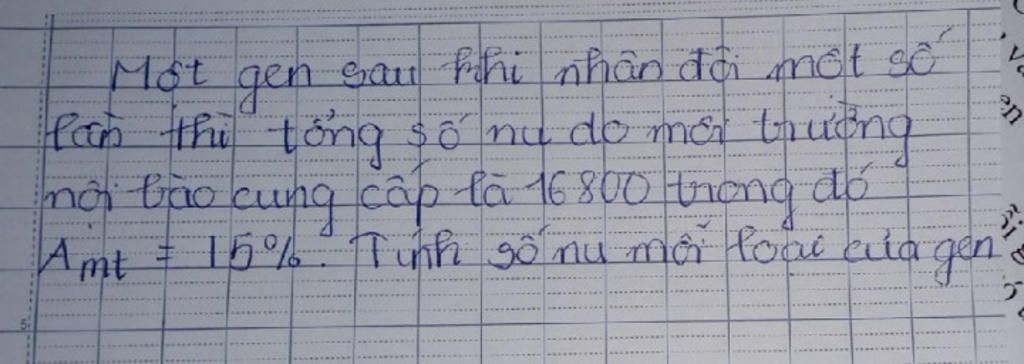 Một gen sau khi nhân đôi một số
lần thì tổng số nu do môi trường
nội bào cung cấp là 16800 trong đó
Amt = 15%. Tính số nu mỗi loại của gen